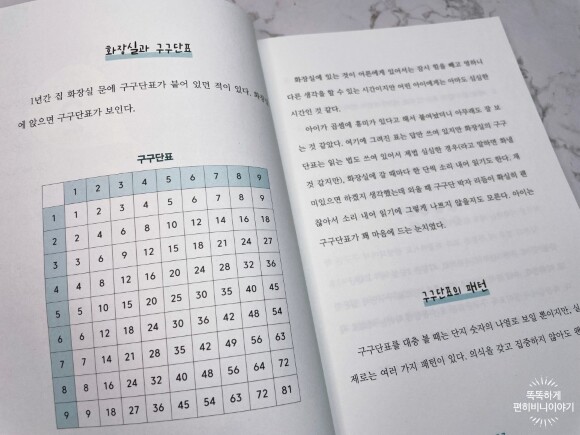 화장실과 구구단표
1년간 집 화장실 문에 구구단표가 붙어 있던 적이 있다. 화장실
에 앉으면 구구단표가 보인다.
구구단표
1 2 3 4 5 6 7 8 9
1 1 2 3 4 5 6 7 8 9
2 2 4 6 8 10 12 14 16 18
3 3 6 9 12 15 18 21 24 27
4 4 8 12 16 20 24 28 32 36
5 5 10 15 20 25 30 35 40 45
6 6 12 18 24 30 36 42 48 54
7 7 14 21 28 35 42 49 56 63
8 8 16 24 32 40 48 56 64 72
9 9 18 27 36 45 54 63 72 81
화장실에 있는 것이 어른에게 있어서는 잠시 힘을 빼고 멍하니
다른 생각을 할 수 있는 시간이지만 어린 아이에게는 아마도 심심한
시간인 것 같다.
아이가 곱셈에 흥미가 있다고 해서 붙여놨더니 아무래도 잘 보
는 것 같았다. 여기에 그려진 표는 답만 쓰여 있지만 화장실의 구구
단표는 읽는 법도 쓰여 있어서 제법 심심한 경우(라고 말하면 화낼
것 같지만), 화장실에 갈 때마다 한 단씩 소리 내어 읽기도 한다. 재
미있으면 하겠지 생각했는데 외울 때 구구단 박자 리듬이 화장실의 
찮아서 소리 내어 읽기에 그렇게 나쁘지 않을지도 모른다. 아이는
구구단표가 꽤 마음에 드는 눈치였다.
구구단표의 패턴
구구단표를 대충 볼 때는 단지 숫자의 나열로 보일 뿐이지만, 실
제로는 여러 가지 패턴이 있다. 의식을 갖고 집중하지 않아도
똑똑하게
편히비니이야기